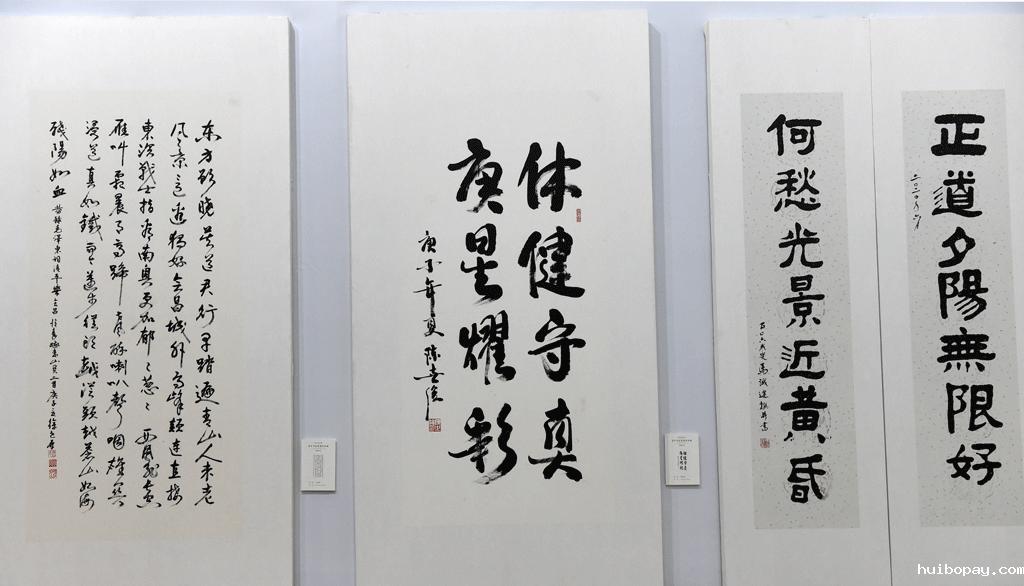 东方欲晓莫道君行早踏遍青山人未老
风景这边独好会昌城外高峰颠连直接
東溟战士指看南粤更加郁々葱々西风烈长空
雁叫霜晨月马蹄声碎喇叭聲咽雄关
漫道真如鐵而今迈步從頭越從頭越苍山如海
殘陽如血
体健守真
庚星耀彩
庚子年夏
正道夕陽無限好
何愁光景近黄昏
huibopay.com